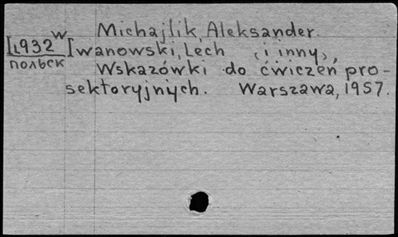 Michajlik, Aleksander.
[1932 w
польск
Iwanowski, Lech (i inny),
Wskazówki do ćwiczeń pro-
sektoryjnych. Warszawa, 1957.